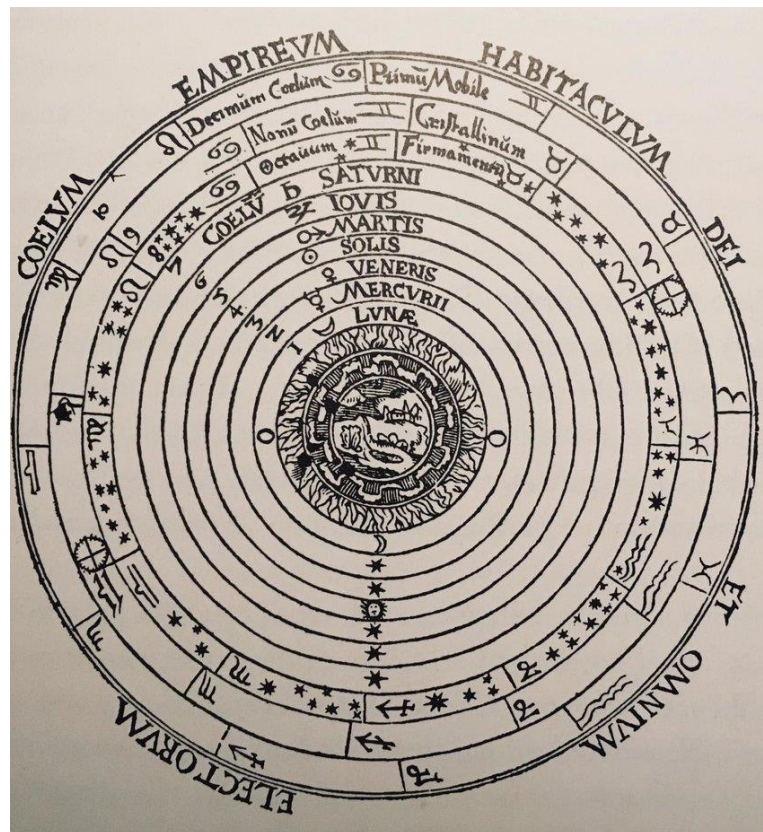 COELVM EMPIREVM HABITACVLVM DEI ET OMNIVM ELECTORVM
Decimum Coelum Primũ Mobile
Nonũ Coelum Cristallinũm
Octauum Firmamentũ
COELV̄ SATVRNI
IOVIS
MARTIS
SOLIS
VENERIS
MERCVRII
LVNÆ
10
9
8
7
6
5
4
3
2
1